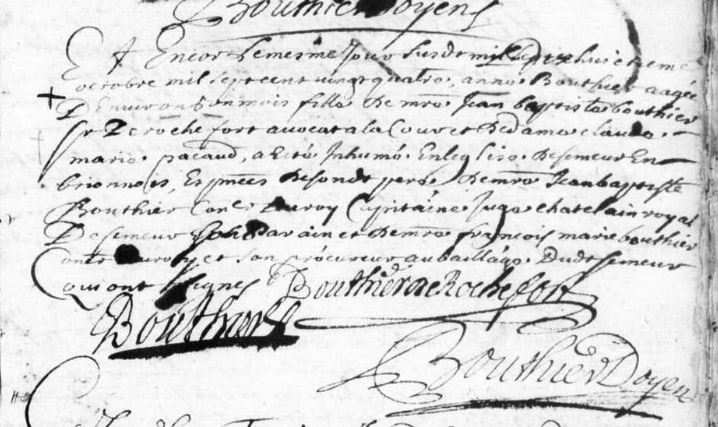 Bouthier Doyen
Et Encor Le mesme Jour susdt dixhuictieme
octobre mil sept cent vingt quatre, anne Bouthier aagée
D'Environ mois fille de mre Jean baptiste bouthier
Sr De rochefort avocat a la Cour et de dame claude
marie pacaud, a esté Inhumé En leglise de semeur En
brionnois, Es pnces de sondt pere de mre Jean baptiste
Bouthier Conler du roy Capitaine Juge chatelain royal
De semeur son parain et de mre francois marie bouthier
Conler du roy et son procureur au bailliage Dudt semeur
Qui ont signes Bouthier de Rochefort
Bouthier
Bouthier Doyen